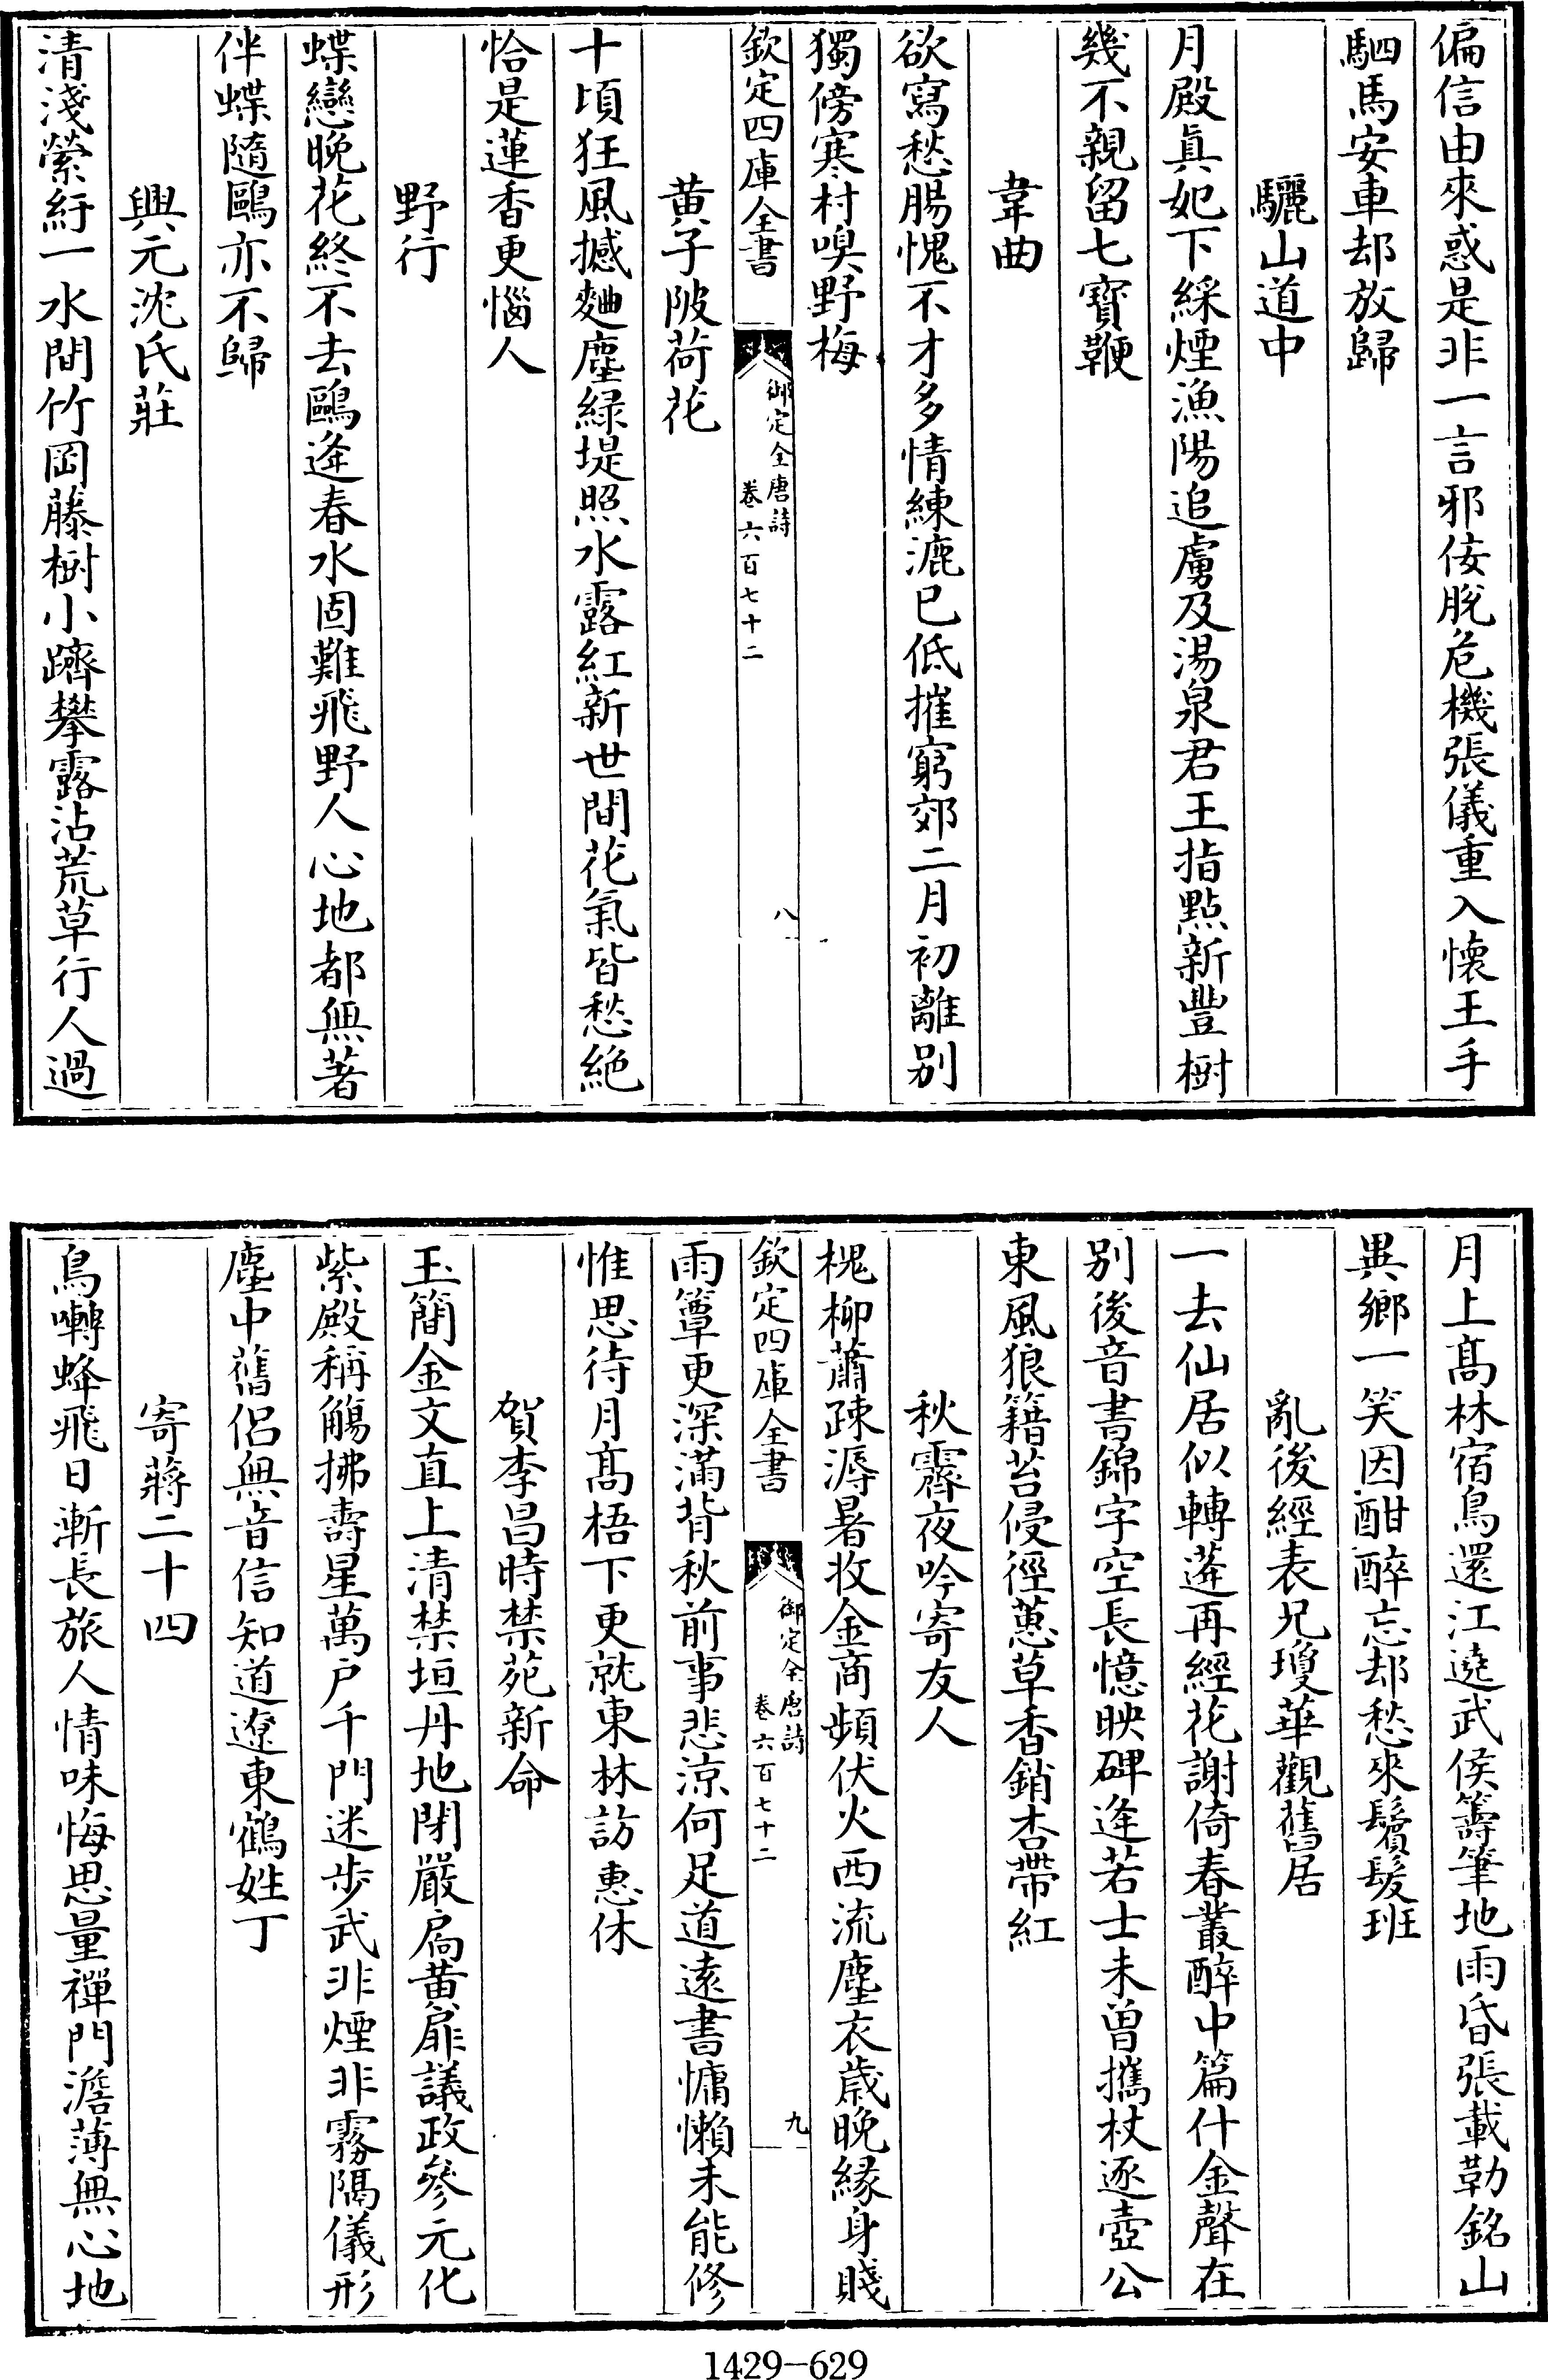 偏信由來惑是非一言邪佞脫危機張儀重入懷王手
駟馬安車却放歸
驪山道中
月殿真妃下綵煙漁陽追虜及湯泉君王指點新豐樹
幾不親留七寶鞭
韋曲
欲寫愁腸愧不才多情練漉已低摧窮郊二月初離別
獨傍寒村嗅野梅
欽定四庫全書
御定全唐詩
卷六百七十二
八
黄子陂荷花
十頃狂風撼麯塵緑堤照水露紅新世間花氣皆愁絶
恰是蓮香更惱人
野行
蝶戀晚花終不去鷗逢春水固難飛野人心地都無著
伴蝶隨鷗亦不歸
興元沈氏莊
清淺縈紆一水間竹岡藤樹小躋攀露沾荒草行人過
月上髙林宿鳥還江遶武侯籌筆地雨昏張載勒銘山
異鄉一笑因酣醉忘却愁來鬢髮班
亂後經表兄瓊華觀舊居
一去仙居似轉蓬再經花謝倚春叢醉中篇什金聲在
别後音書錦字空長憶映碑逢若士未曾攜杖逐壺公
東風狼籍苔侵徑蕙草香銷杏帶紅
秋霽夜吟寄友人
槐柳蕭疎溽暑收金商頻伏火西流塵衣歲晚緣身賤
欽定四庫全書
御定全唐詩
卷六百七十二
九
雨簟更深滿背秋前事悲涼何足道遠書慵懶未能修
惟思待月髙梧下更就東林訪惠休
賀李昌時禁苑新命
玉簡金文直上清禁垣丹地閉嚴扃黄扉議政參元化
紫殿稱觴拂壽星萬户千門迷步武非煙非霧隔儀形
塵中舊侶無音信知道遼東鶴姓丁
寄蔣二十四
鳥囀蜂飛日漸長旅人情味悔思量禪門澹薄無心地
1429-629